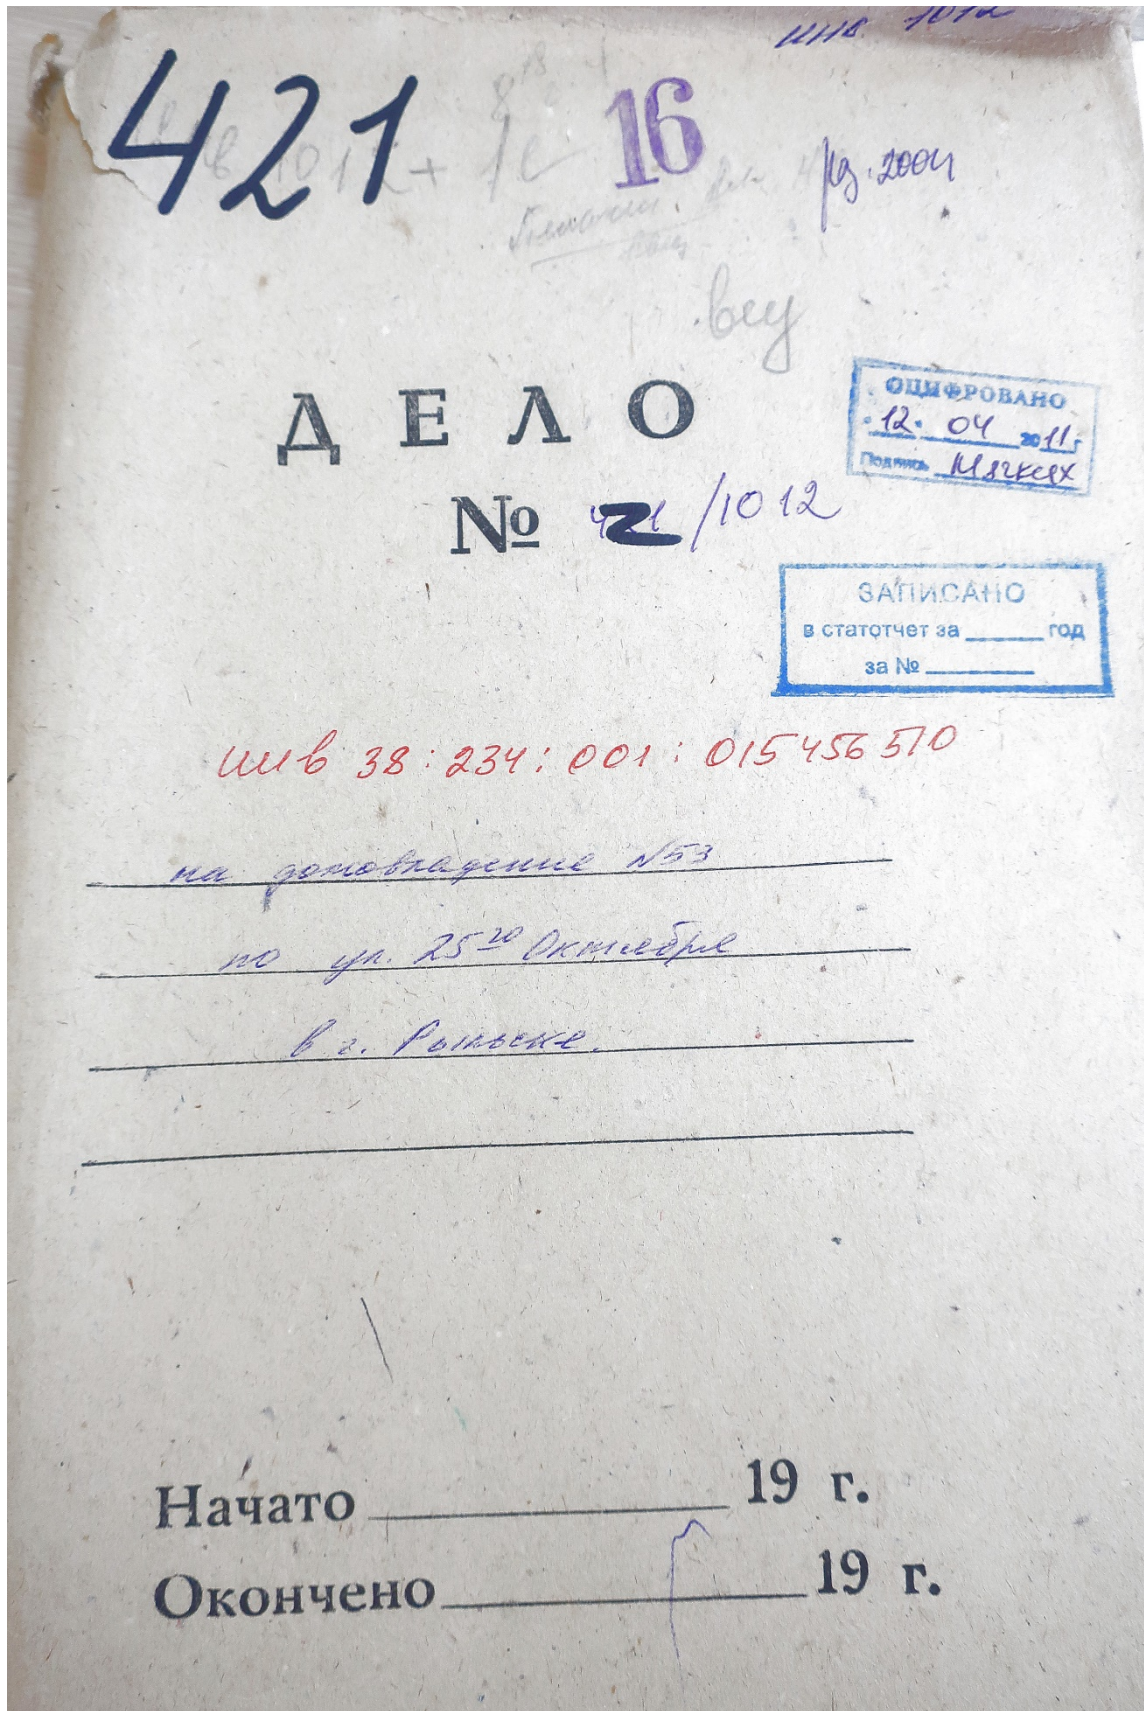 инв 1012
421
16
2004
ДЕЛО
ОЦИФРОВАНО
12 04 2011г
Подпись Мягких
№ 421/1012
ЗАПИСАНО
в статотчет за ______ год
за № ______
инв 38:234:001:015456510
на домовладение №53
по ул. 25го Октября
в г. Рыльске.
Начато ______ 19 г.
Окончено ______ 19 г.